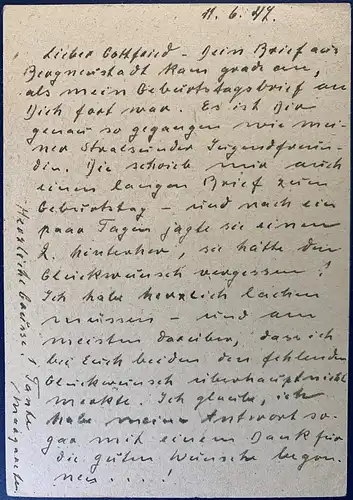 11. 6. 47.
Lieber Gottfried - Dein Brief aus
Bergneustadt kam grade an,
als mein Geburtstagsbrief an
Dich fort war. Es ist Dir
genau so gegangen wie mei-
ner Stralsunder Jugendfreun-
din. Die schrieb mir auch
einen langen Brief zum
Geburtstag - und nach ein
paar Tagen jagte sie einen
2. hinterher, sie hätte den
Glückwunsch vergessen!
Ich habe herzlich lachen
müssen - und am
meisten darüber, dass ich
bei Euch beiden den fehlenden
Glückwunsch überhaupt nicht
merkte. Ich glaube, ich
habe meine Antwort so-
gar mit einem Dank für
die guten Wünsche begon-
nen . . . .
Herzliche Grüsse! Tante
Margarethe.